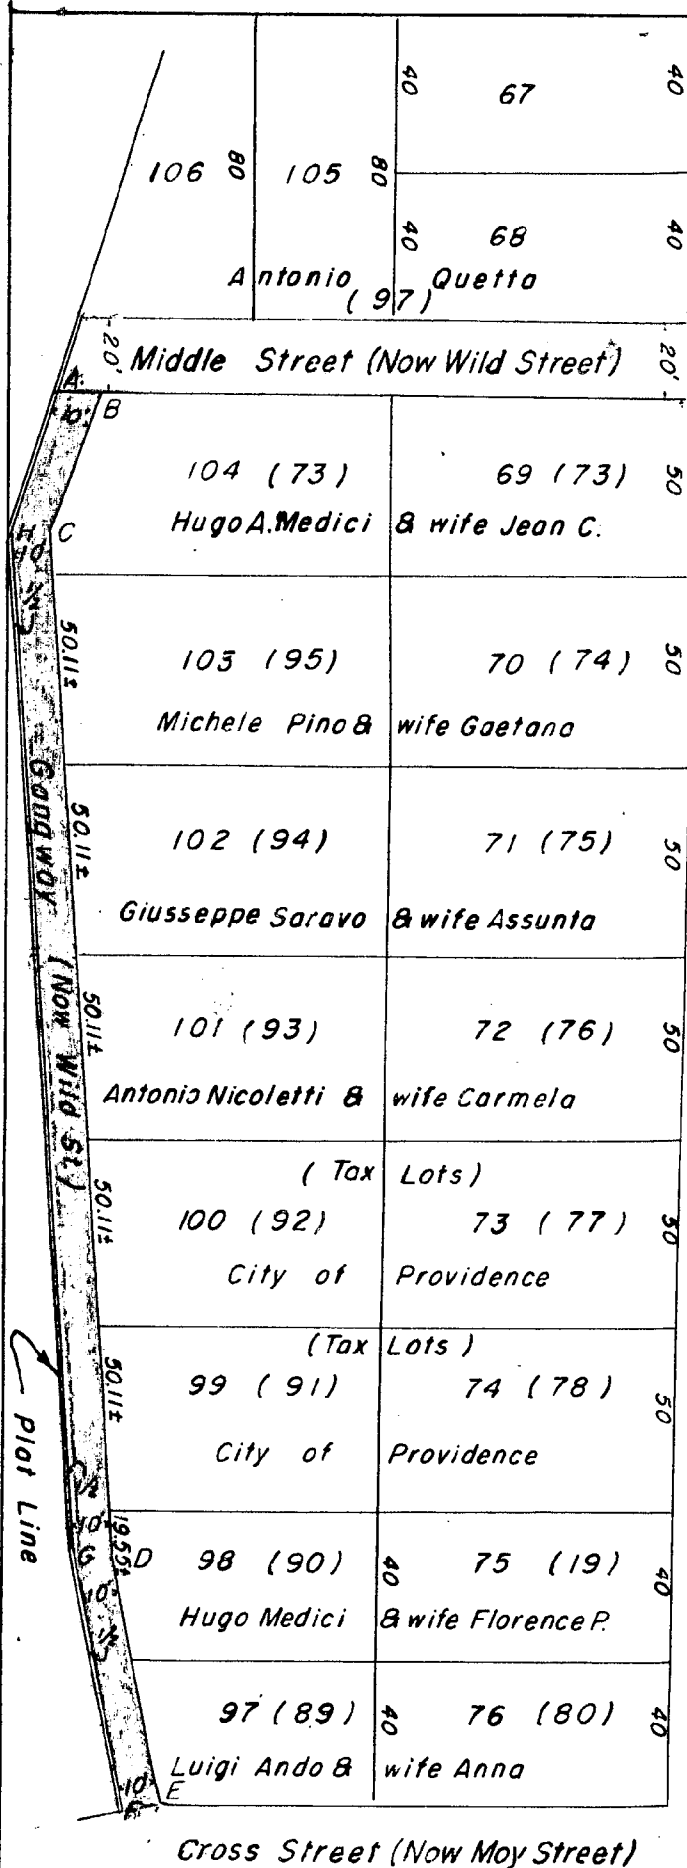 40 67 40
106 80 105 80
40 68 40
Antonio Quetta
(97)
20' Middle Street (Now Wild Street) 20'
A. 10' B
104 (73) 69 (73) 50
Hugo A. Medici & wife Jean C.
H C
10'
50.11±
103 (95) 70 (74) 50
Michele Pino & wife Gaetana
50.11±
102 (94) 71 (75) 50
Giusseppe Saravo & wife Assunta
Gangway (Now Wild St.)
50.11±
101 (93) 72 (76) 50
Antonio Nicoletti & wife Carmela
(Tax Lots)
50.11±
100 (92) 73 (77) 50
City of Providence
(Tax Lots)
50.11±
99 (91) 74 (78) 50
City of Providence
Plat Line
10' 19.55±
G D 98 (90) 40 75 (19) 40
10'
Hugo Medici & wife Florence P.
97 (89) 40 76 (80) 40
Luigi Ando & wife Anna
10' E
Cross Street (Now Moy Street)